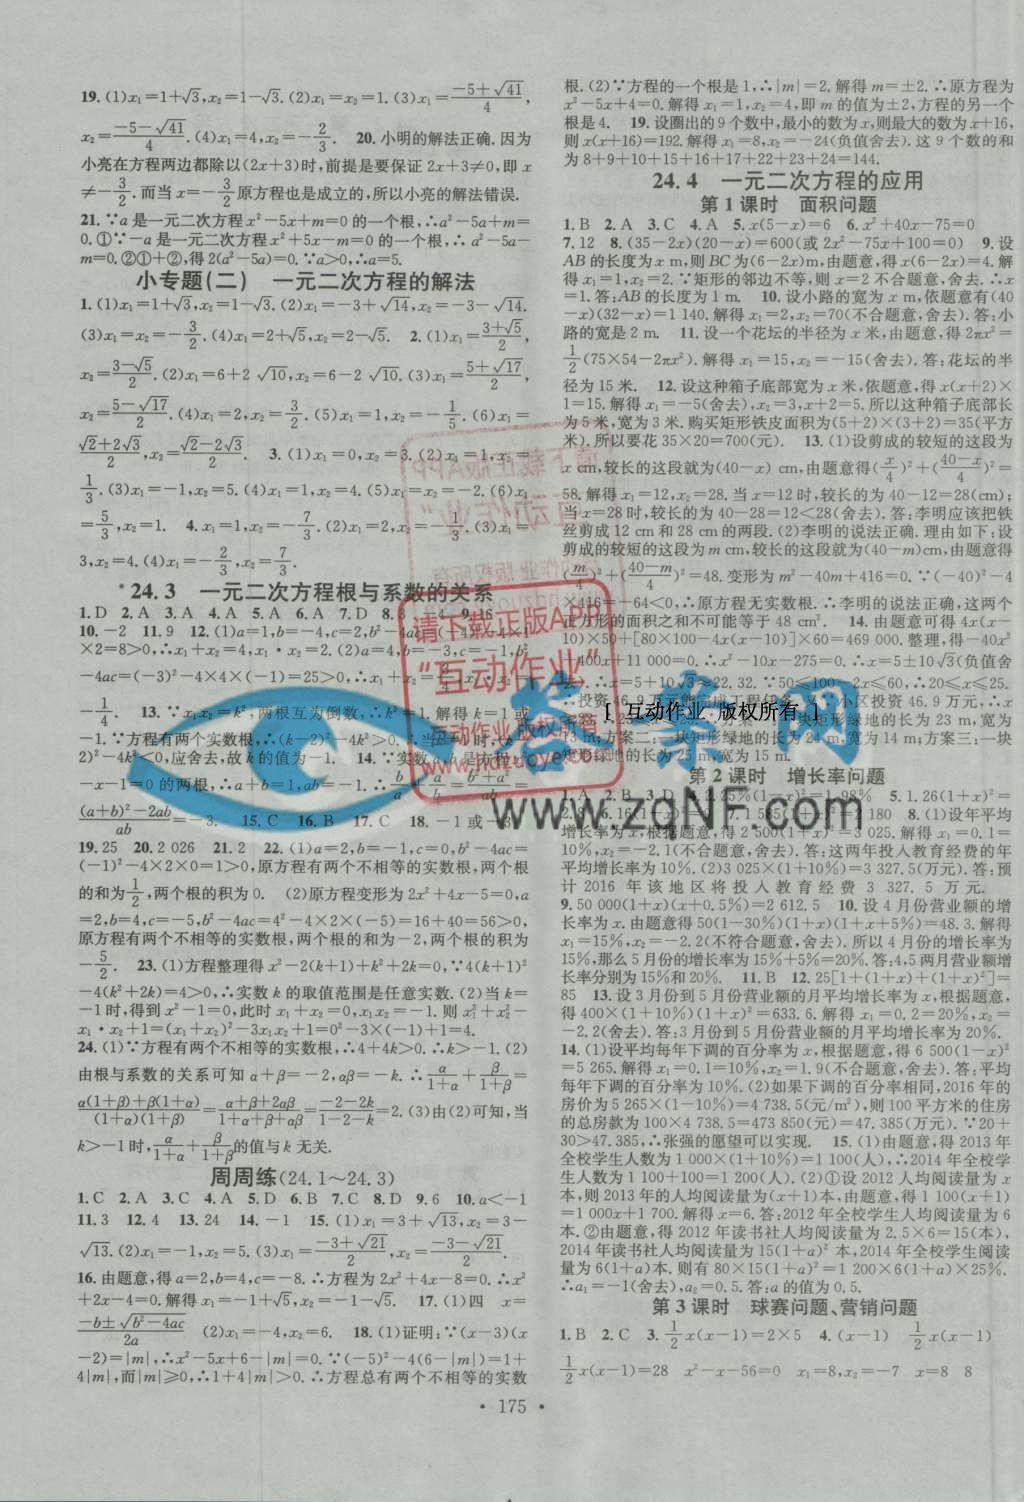 19. (1)x₁=1+√3,x₂=1-√3. (2)x₁=x₂=1. (3)x₁=(-5+√41)/4,
x₂=(-5-√41)/4. (4)x₁=4,x₂=-2/3. 20. 小明的解法正确. 因为
小亮在方程两边都除以(2x+3)时,前提是要保证 2x+3≠0,即 x
≠-3/2. 而当 x=-3/2原方程也是成立的,所以小亮的解法错误.
21. ∵a 是一元二次方程 x²-5x+m=0 的一个根,∴a²-5a+m=
0. ①∵-a 是一元二次方程 x²+5x-m=0 的一个根,∴a²-5a-
m=0. ②①+②,得 2(a²-5a)=0. ∵a>0,∴a=5.
小专题(二) 一元二次方程的解法
1. (1)x₁=1+√3,x₂=1-√3. (2)x₁=-3+√14,x₂=-3-√14.
(3)x₁=x₂=-3/2. (4)x₁=2,x₂=-5. 2. (1)x₁=(3+√5)/2,
x₂=(3-√5)/2. (2)x₁=6+2√10,x₂=6-2√10. (3)x₁=(5+√17)/2,
x₂=(5-√17)/2. (4)x₁=2,x₂=3/2. (5)x₁=1,x₂=-1/5. (6)x₁=
(√2+2√3)/2,x₂=(√2-2√3)/2. 3. (1)x₁=0,x₂=3. (2)x₁=1,x₂=
1/3. (3)x₁=-1,x₂=5. (4)x₁=x₂=4. (5)x₁=x₂=-2. (6)x₁
=5/3,x₂=1. 4. x₁=1,x₂=-7/3. (2)x₁=2,x₂=-1/3. (3)x₁=
3,x₂=4. (4)x₁=-2/3,x₂=7/3.
*24.3 一元二次方程根与系数的关系
1. D 2. A 3. A 4. A 5. A 6. A 7. D 8. -4 9. 16
10. -2 11. 9 12. (1)a=1,b=-4,c=2,b²-4ac=(-4)²-4×1
×2=8>0,∴x₁+x₂=4,x₁·x₂=2. (2)a=4,b=-3,c=-1,b²
-4ac=(-3)²-4×4×(-1)=25>0,∴x₁+x₂=3/4,x₁x₂=
-1/4. 13. ∵x₁x₂=k²,两根互为倒数,∴k²=1. 解得 k=1 或
-1. ∵方程有两个实数根,∴
-4k²<0,应舍去,故 k 的值为-1. 14.
-x-1=0 的两根,∴a+b=1,ab=-1. ∴b/a+a/b=(b²+a²)/ab=
((a+b)²-2ab)/ab=-3. 15. C 16. B 17. C 18. -1 或-3
19. 25 20. 2 026 21. 2 22. (1)a=2,b=-1,c=0,b²-4ac=
(-1)²-4×2×0=1>0,原方程有两个不相等的实数根,两个根
的和为1/2,两个根的积为 0. (2)原方程变形为 2x²+4x-5=0,a
=2,b=4,c=-5,b²-4ac=4²-4×2×(-5)=16+40=56>0,
原方程有两个不相等的实数根,两个根的和为-2,两个根的积为
-5/2. 23. (1)方程整理得 x²-2(k+1)+k²+2k=0,∵4(k+1)²
-4(k²+2k)=4>0,∴实数 k 的取值范围是任意实数. (2)当 k=
-1 时,得到 x²-1=0,此时 x₁+x₂=0,x₁x₂=-1. 则 x₁²+x₂²-
x₁·x₂+1=(x₁+x₂)²-3x₁x₂+1=0²-3×(-1)+1=4.
24. (1)∵方程有两个不相等的实数根,∴4+4k>0. ∴k>-1. (2)
由根与系数的关系可知 α+β=-2,αβ=-k. ∴α/(1+α)+β/(1+β)=
(α(1+β)+β(1+α))/((1+α)(1+β))=(α+β+2αβ)/(1+α+β+αβ)=(-2-2k)/(1-2-k)=2. (3)由(2)可知,当
k>-1 时,α/(1+α)+β/(1+β)的值与 k 无关.
周周练(24.1~24.3)
1. C 2. A 3. C 4. A 5. D 6. B 7. C 8. D 9. 6 10. a<-1
11. 3 12. 4 13. 24 14. -1 15. (1)x₁=3+√13,x₂=3-
√13. (2)x₁=2,x₂=-5. (3)x₁=(-3+√21)/2,x₂=(-3-√21)/2.
16. 由题意,得 a=2,b=4,c=-8. ∴方程为 2x²+4x-8=0. ∴x²
+2x-4=0. 解得 x₁=-1+√5,x₂=-1-√5. 17. (1)四 x=
(-b±√(b²-4ac))/2a (2)x₁=-4,x₂=6. 18. (1)证明:∵(x-3)(x
-2)=|m|,∴x²-5x+6-|m|=0. ∵(-5)²-4(6-|m|)=1+
4|m|,而|m|≥0,∴1+4|m|>0. ∴方程总有两个不相等的实数
根. (2)∵方程的一个根是 1,∴|m|=2. 解得 m=±2. ∴原方程为
x²-5x+4=0. 解得 x₁=1,x₂=4,即 m 的值为±2,方程的另一个
根是 4. 19. 设圈出的 9 个数中,最小的数为 x,则最大的数为 x+16,
则 x(x+16)=192. 解得 x₁=8,x₂=-24(负值舍去). 这 9 个数的和
为 8+9+10+15+16+17+22+23+24=144.
24.4 一元二次方程的应用
第 1 课时 面积问题
1. B 2. A 3. C 4. A 5. x(5-x)=6 6. x²+40x-75=0
7. 12 8. (35-2x)(20-x)=600(或 2x²-75x+100=0) 9. 设
AB 的长度为 x m,则 BC 为(6-2x)m,由题意,得 x(6-2x)=4.
解得 x₁=1,x₂=2. ∵矩形的邻边不等,则 x=2 不合题意,舍去. ∴x
=1. 答:AB 的长度为 1 m. 10. 设小路的宽为 x m,依题意有(40
-x)(32-x)=1 140. 解得 x₁=2,x₂=70(不合题意,舍去). 答:小
路的宽是 2 m. 11. 设一个花坛的半径为 x 米,由题意,得 2πx²=
1/2(75×54-2πx²). 解得 x₁=15,x₂=-15(舍去). 答:花坛的半
径为 15 米. 12. 设这种箱子底部宽为 x 米,依题意,得 x(x+2)×
1=15. 解得 x₁=-5(舍去),x₂=3,x+2=5. 所以这种箱子底部长
为 5 米,宽为 3 米. 购买矩形铁皮面积为(5+2)×(3+2)=35(平方
米). 所以要花 35×20=700(元). 13. (1)设剪成的较短的这段为
x cm,较长的这段就为(40-x) cm,由题意,得(x/4)²+((40-x)/4)²=
58. 解得 x₁=12,x₂=28. 当 x=12 时,较长的为 40-12=28(cm);
当 x=28 时,较长的为 40-28=12<28(舍去). 答:李明应该把铁
丝剪成 12 cm 和 28 cm 的两段. (2)李明的说法正确. 理由如下:设
剪成的较短的这段为 m cm,较长的这段就为(40-m)cm,由题意,得
(m/4)²+((40-m)/4)²=48. 变形为 m²-40m+416=0. ∵(-40)²-
4×416=-64<0,∴原方程无实数根. ∴李明的说法正确,这两个
正方形的面积之和不可能等于 48 cm². 14. 由题意可得 4x(x-
10)×50+[80×100-4x(x-10)]×60=469000. 整理,得-40x²
+400x+11 000=0. ∴x²-10x-275=0. ∴x=5±10√3(负值舍
去). ∴x=5+10√3≈22.32. ∵-50≤-2x≤-60,∴20≤x≤25.
∴投资 46.9 万元能 小区投资 46.9 万元,∴
块矩形绿地的长为 23 m,宽为
13 m;方案二:一块矩形绿地的长为 24 m,宽为 14 m;方案三:一块
矩形绿地的长为 25 m,宽为 15 m.
第 2 课时 增长率问题
1. A 2. D 3. D 4. 25%(1-x)²=1.98% 5. 1.26(1+x)²=
2.8 6. 16(1+x)²= 7. 1.5(1+x)²= 180 8. (1)设年平均
增长率为 x,根据题意,得 2 500(1+x)²=3 025. 解得 x₁=0.1=
10%,x₂=-2.1(不合题意,舍去). 答:这两年投入教育经费的年
平均增长率为 10%. (2)3 025×(1+10%)=3 327.5(万元). 答:预
计 2016 年该地区将投入教育经费 3 327.5 万元.
9. 50 000(1+x)(x+0.5%)=2 612.5 10. 设 4 月份营业额的增
长率为 x. 由题意得 50(1-30%)(1+x)(1+x+5%)=48.3. 解得
x₁=15%,x₂=-2.2(不符合题意,舍去). 所以 4 月份的增长率为
15%,那么 5 月份的增长率为 15%+5%=20%. 答:4,5 两月营业额
增长率分别为 15%和 20%. 11. B 12. 25[1+(1+x)+(1+x)²]=
85 13. 设 3 月份到 5 月份营业额的月平均增长率为 x,根据题意,
得 400×(1+10%)(1+x)²=633.6. 解得 x₁=0.2=20%,x₂=
-2.2(舍去). 答:3 月份到 5 月份营业额的月平均增长率为 20%.
14. (1)设平均每年下调的百分率为 x,根据题意,得 6 500(1-x)²
=5 265. 解得 x₁=0.1=10%,x₂=1.9(不合题意,舍去). 答:平均
每年下调的百分率为 10%. (2)如果下调的百分率相同,2016 年的
房价为 5 265×(1-10%)=4 738.5(元/m²),则 100 平方米的住房
的总房款为 100×4 738.5=473 850(元)=47.385(万元). ∵20+
30>47.385,∴张强的愿望可以实现. 15. (1)由题意,得 2013 年
全校学生人数为 1 000×(1+10%)=1 100(人),∴2014 年全校学
生人数为 1 100+100=1 200(人). (2)①设 2012 人均阅读量为 x
本,则 2013 年的人均阅读量为(x+1)本,由题意,得 1 100(x+1)
=1 000x+1 700. 解得 x=6. 答:2012 年全校学生人均阅读量为 6
本. ②由题意,得 2012 年读书社人均阅读量为 2.5×6=15(本),
2014 年读书社人均阅读量为 15(1+a)² 本,2014 年全校学生阅读
量为 6(1+a)本. 则有 80×15(1+a)²=1 200×6(1+a)×25%.
∴a₁=-1(舍去),a₂=0.5. 答:a 的值为 0.5.
第 3 课时 球赛问题、营销问题
1. B 2. C 3. 1/2x(x-1)=2×5 4. (x-1) 1/2x(x-1)
1/2x(x-1)=28 x²-x-56=0 x₁=8,x₂=-7 x=8 8
· 175 ·
请下载正版APP
"互动作业"
互动作业 版权所有
[ 互动作业 版权所有 ]
答案网
www.zqNF.com